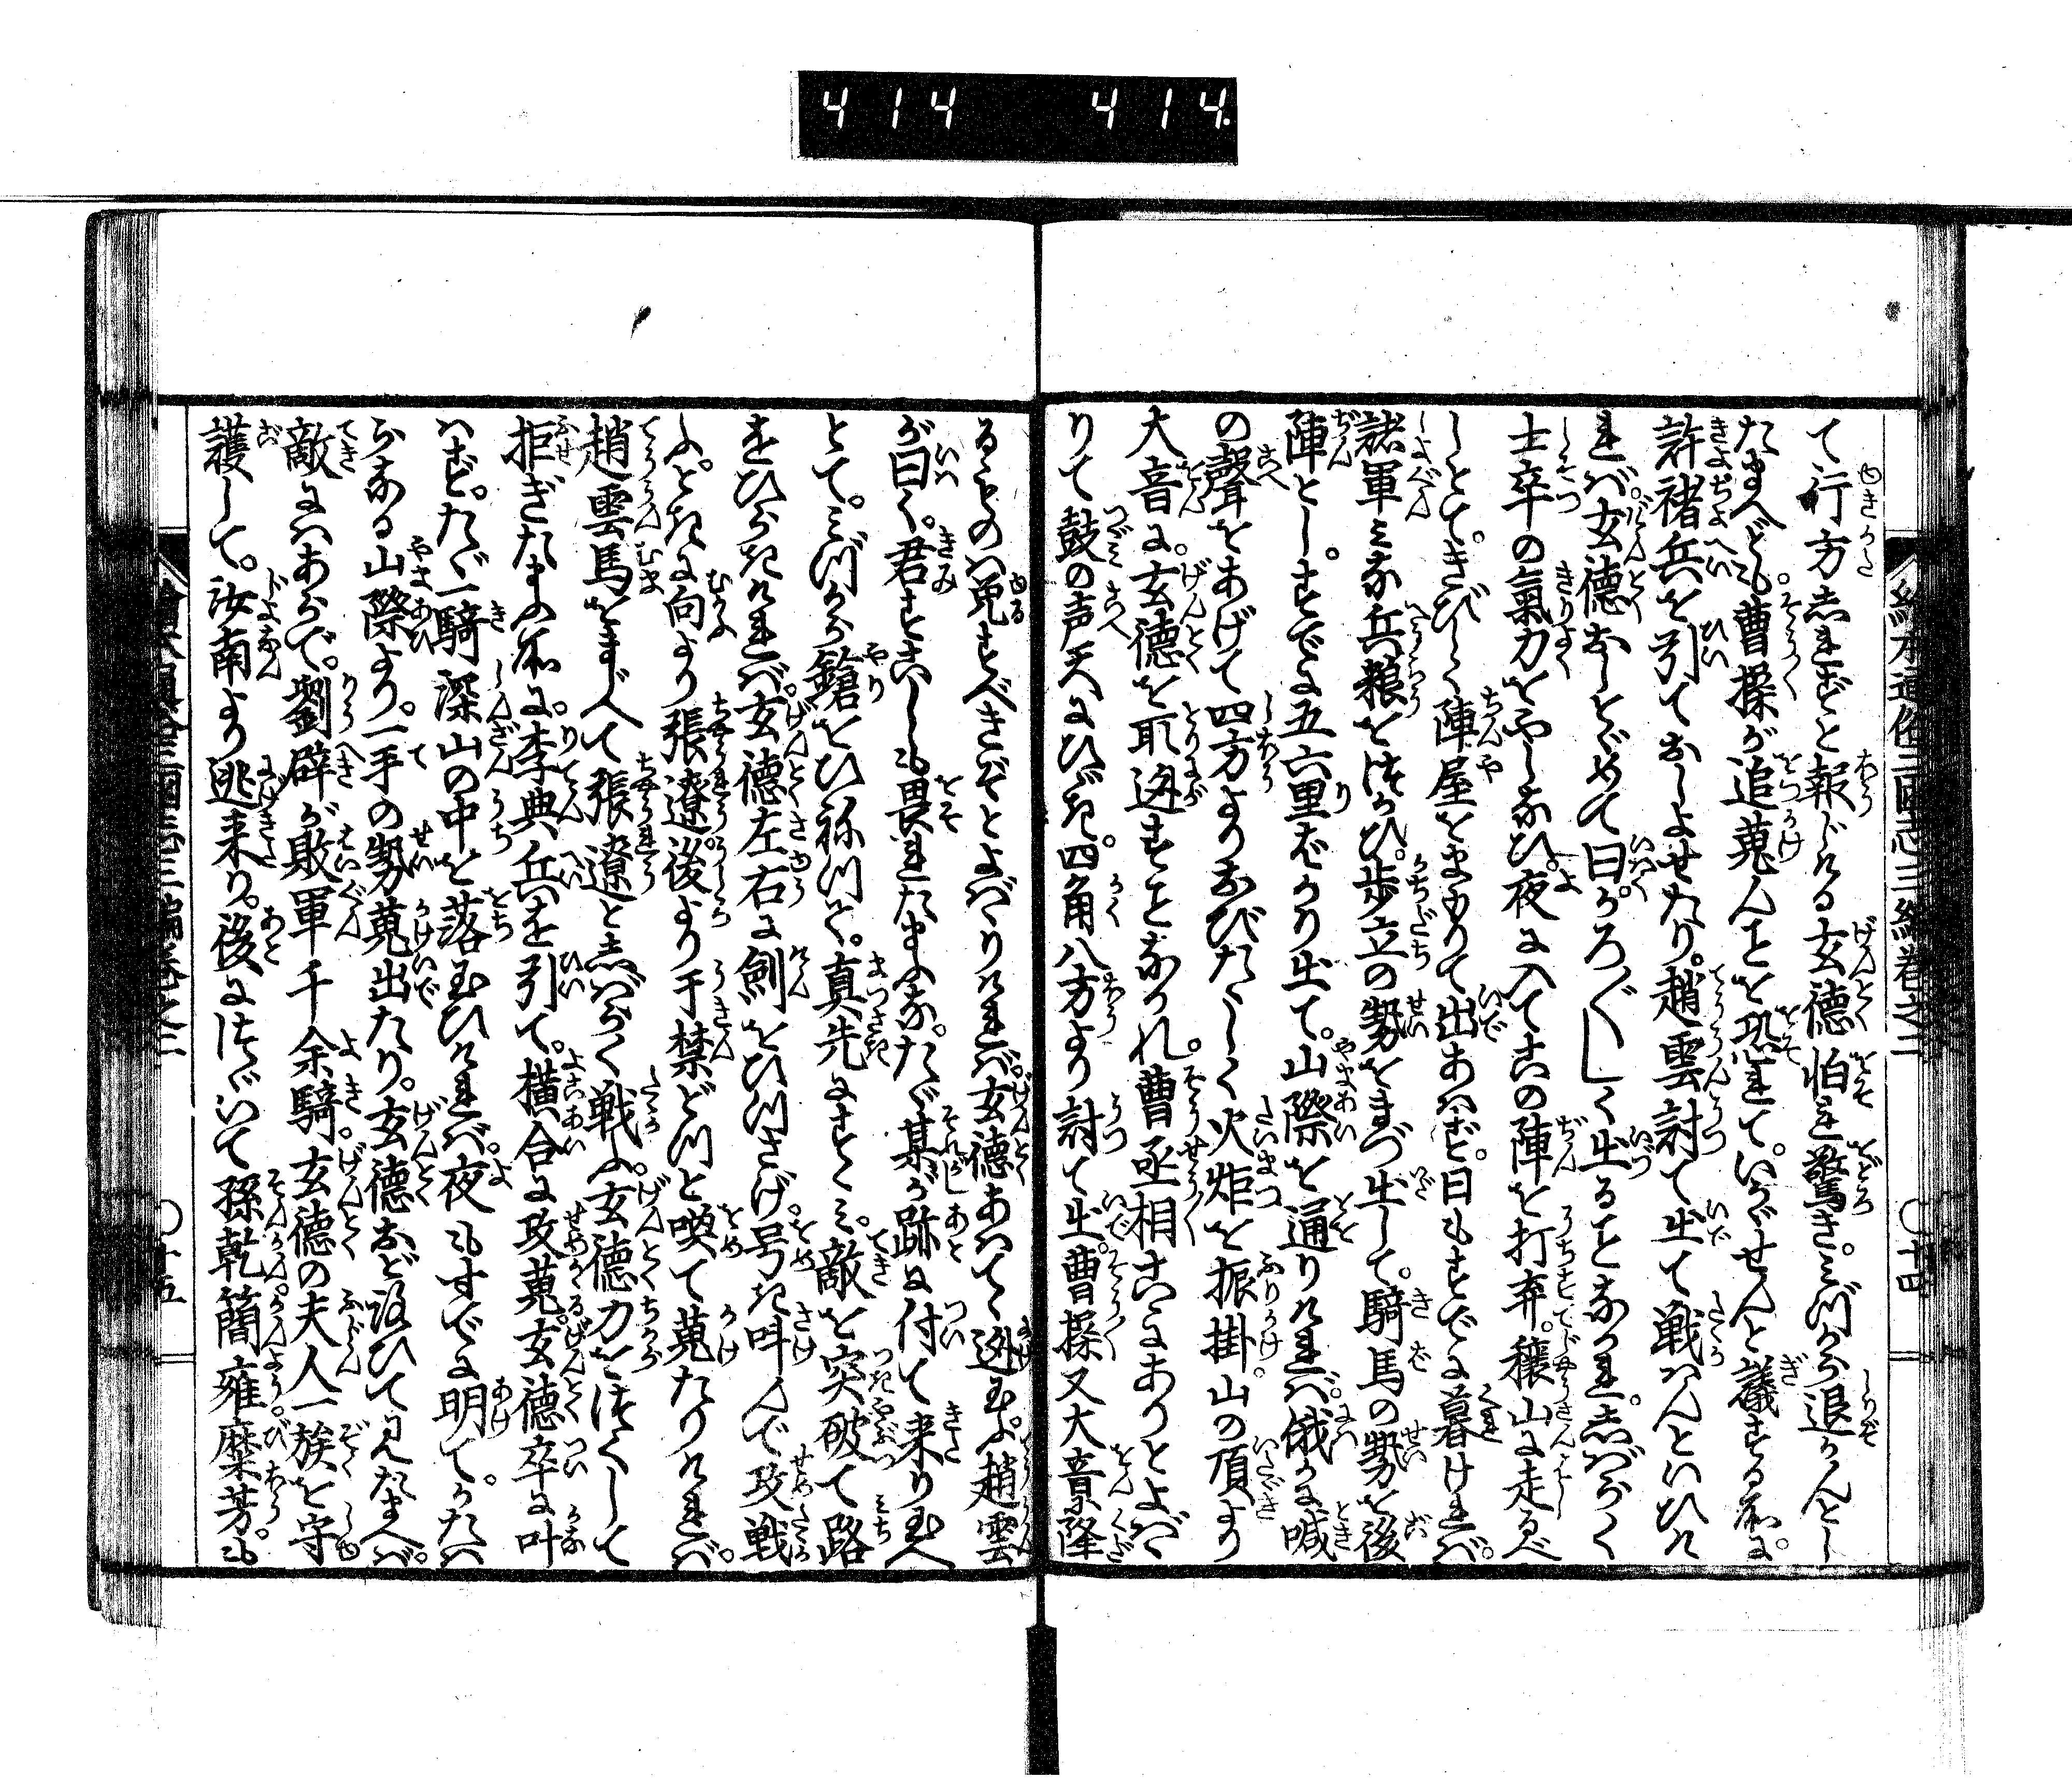 414 414
繪本通俗三國志三編卷之二 ○十四
て行方しれずと報じける玄德怕れ驚き。みづから退かんとし
たまへども。曹操が追蒐んことを恐れて。いかゞせんと議する所に。
許褚兵を引ておしよせたり。趙雲討て出て戦はんといひけ
れバ。玄德おしとゞめて曰。かろ〴〵しく出ることなかれ。しばらく
士卒の氣力をやしなひ。夜に入てこの陣を打弃。穰山に走るべ
しとて。きびしく陣屋をまもりて出あはず。日もすでに暮けれバ。
諸軍ミな兵粮をつかひ。歩立の勢をまづ出して。騎馬の勢を後
陣とし。すでに五六里ばかり出て。山際を通りけれバ。俄に喊
の聲をあげて四方よりおびたゝしく火炬を振掛。山の頂より
大音に。玄德を取逃すことなかれ。曹丞相こゝにありとよバ
りて鼓の声天にひゞき。四角八方より討て出。曹操又大音降
るものハ免すべきぞとよバりけれバ。玄德あはてゝ逃玉ふ。趙雲
が曰く。君すこしも畏れたまふな。たゞ某が跡に付て来り玉へ
とて。ミづから鎗をひねつて。真先にすゝミ。敵を突破て路
をひらきけれバ。玄德左右に劍をひつさげ。号き叫んで攻戦
ふ。ときに向より張遼。後より于禁どつと喚て蒐たりけれバ。
趙雲馬をまじへて張遼としばらく戦ふ。玄德力をつくして
拒ぎたまふ所に。李典兵を引て。横合に攻蒐。玄德卒に叶
はず。たゞ一騎深山の中を落玉ひけれバ。夜もすでに明て。かたハ
らなる山際より。一手の勢蒐出たり。玄德おどろひて見たまへバ。
敵にハあらで。劉辟が敗軍千余騎。玄德の夫人一族を守
護して。汝南より逃来り。後につゞいて孫乾簡雍糜芳。も
○十五